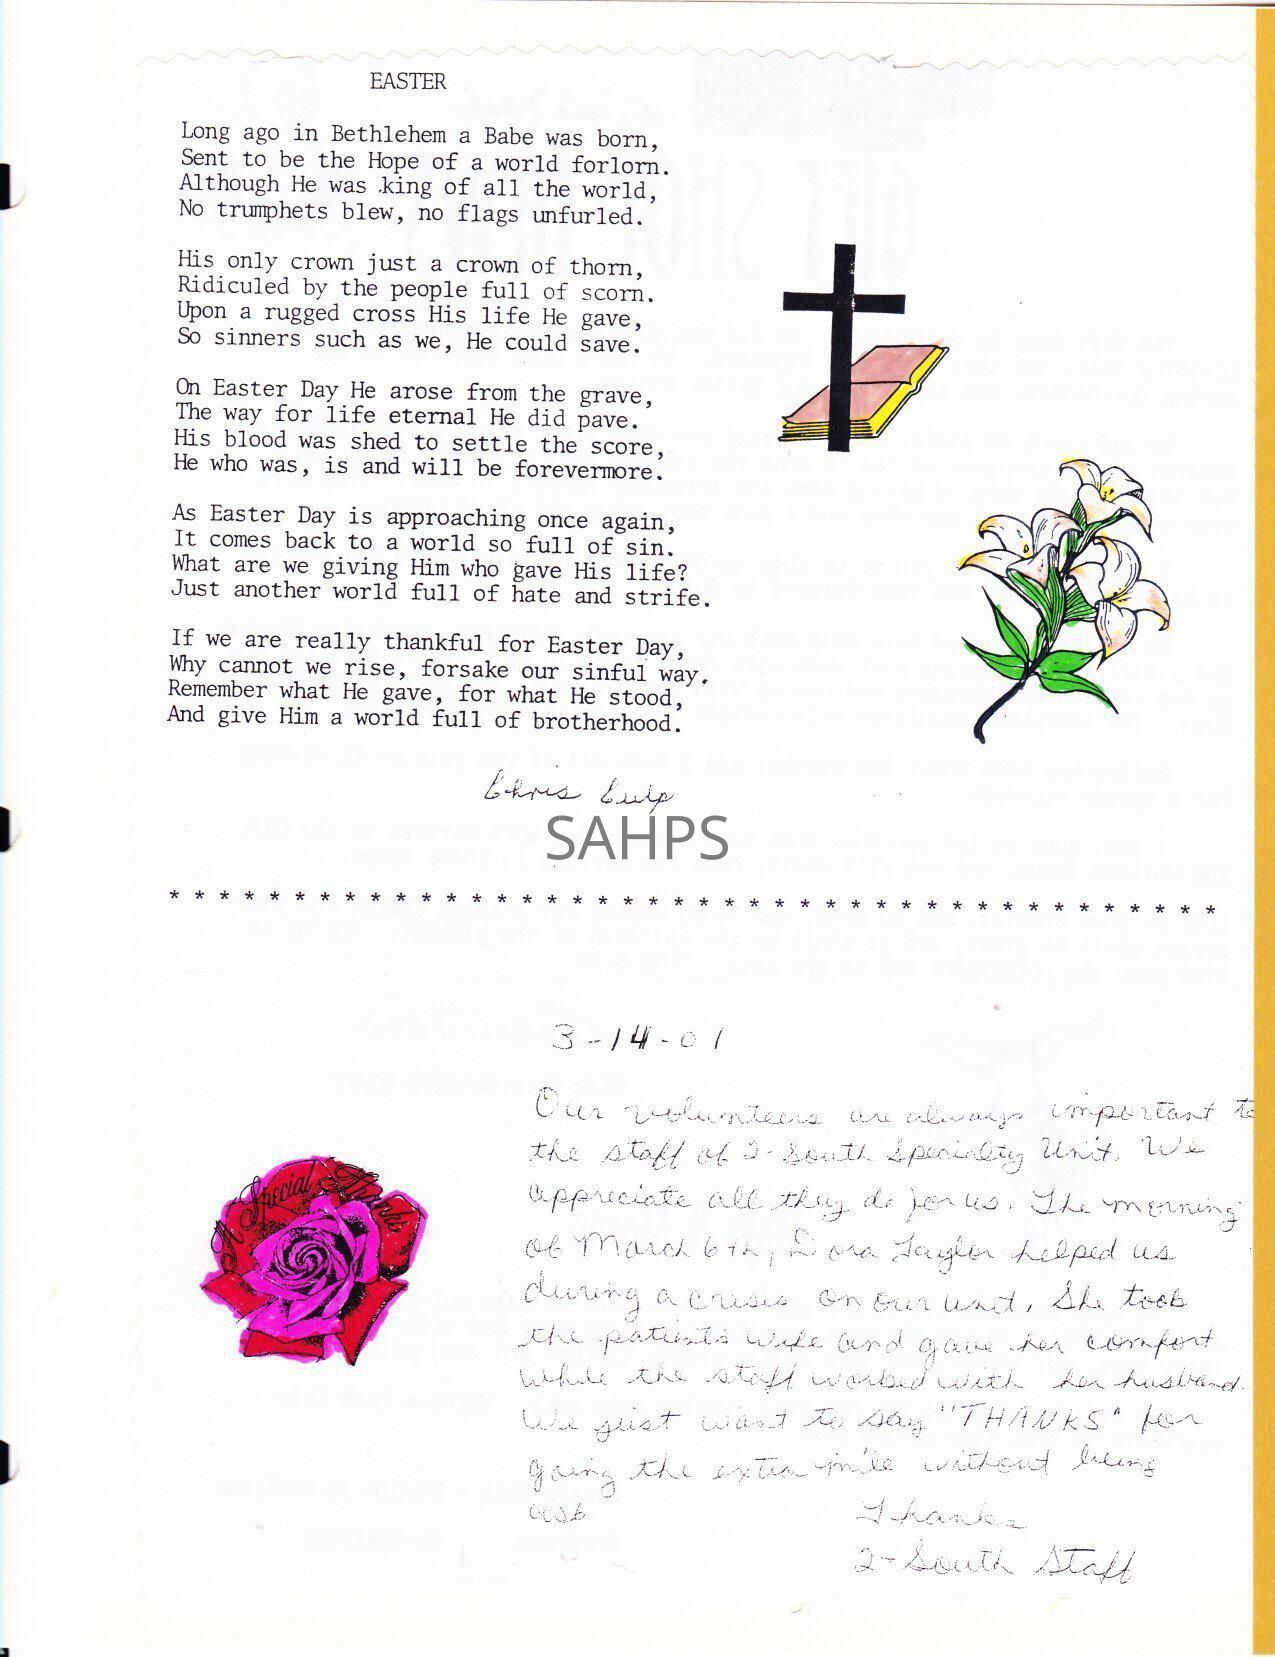 EASTER
Long ago in Bethlehem a Babe was born,
Sent to be the Hope of a world forlorn.
Although He was king of all the world,
No trumphets blew, no flags unfurled.
His only crown just a crown of thorn,
Ridiculed by the people full of scorn.
Upon a rugged cross His life He gave,
So sinners such as we, He could save.
On Easter Day He arose from the grave,
The way for life eternal He did pave.
His blood was shed to settle the score,
He who was, is and will be forevermore.
As Easter Day is approaching once again,
It comes back to a world so full of sin.
What are we giving Him who gave His life?
Just another world full of hate and strife.
If we are really thankful for Easter Day,
Why cannot we rise, forsake our sinful way.
Remember what He gave, for what He stood,
And give Him a world full of brotherhood.
Chris Culp
SAHPS
* * * * * * * * * * * * * * * * * * * * * * * * * * * * * * * * * * * * * * * * * *
3-14-01
Our volunteers are always important to
the staff of 2-South Specialty Unit. We
appreciate all they do for us. The morning
of March 6th, Dora Taylor helped us
during a crisis on our unit. She took
the patient's wife and gave her comfort
while the staff worked with her husband.
We just want to say "THANKS" for
going the extra mile without being
ask
Thanks
2-South Staff
A Special Thanks